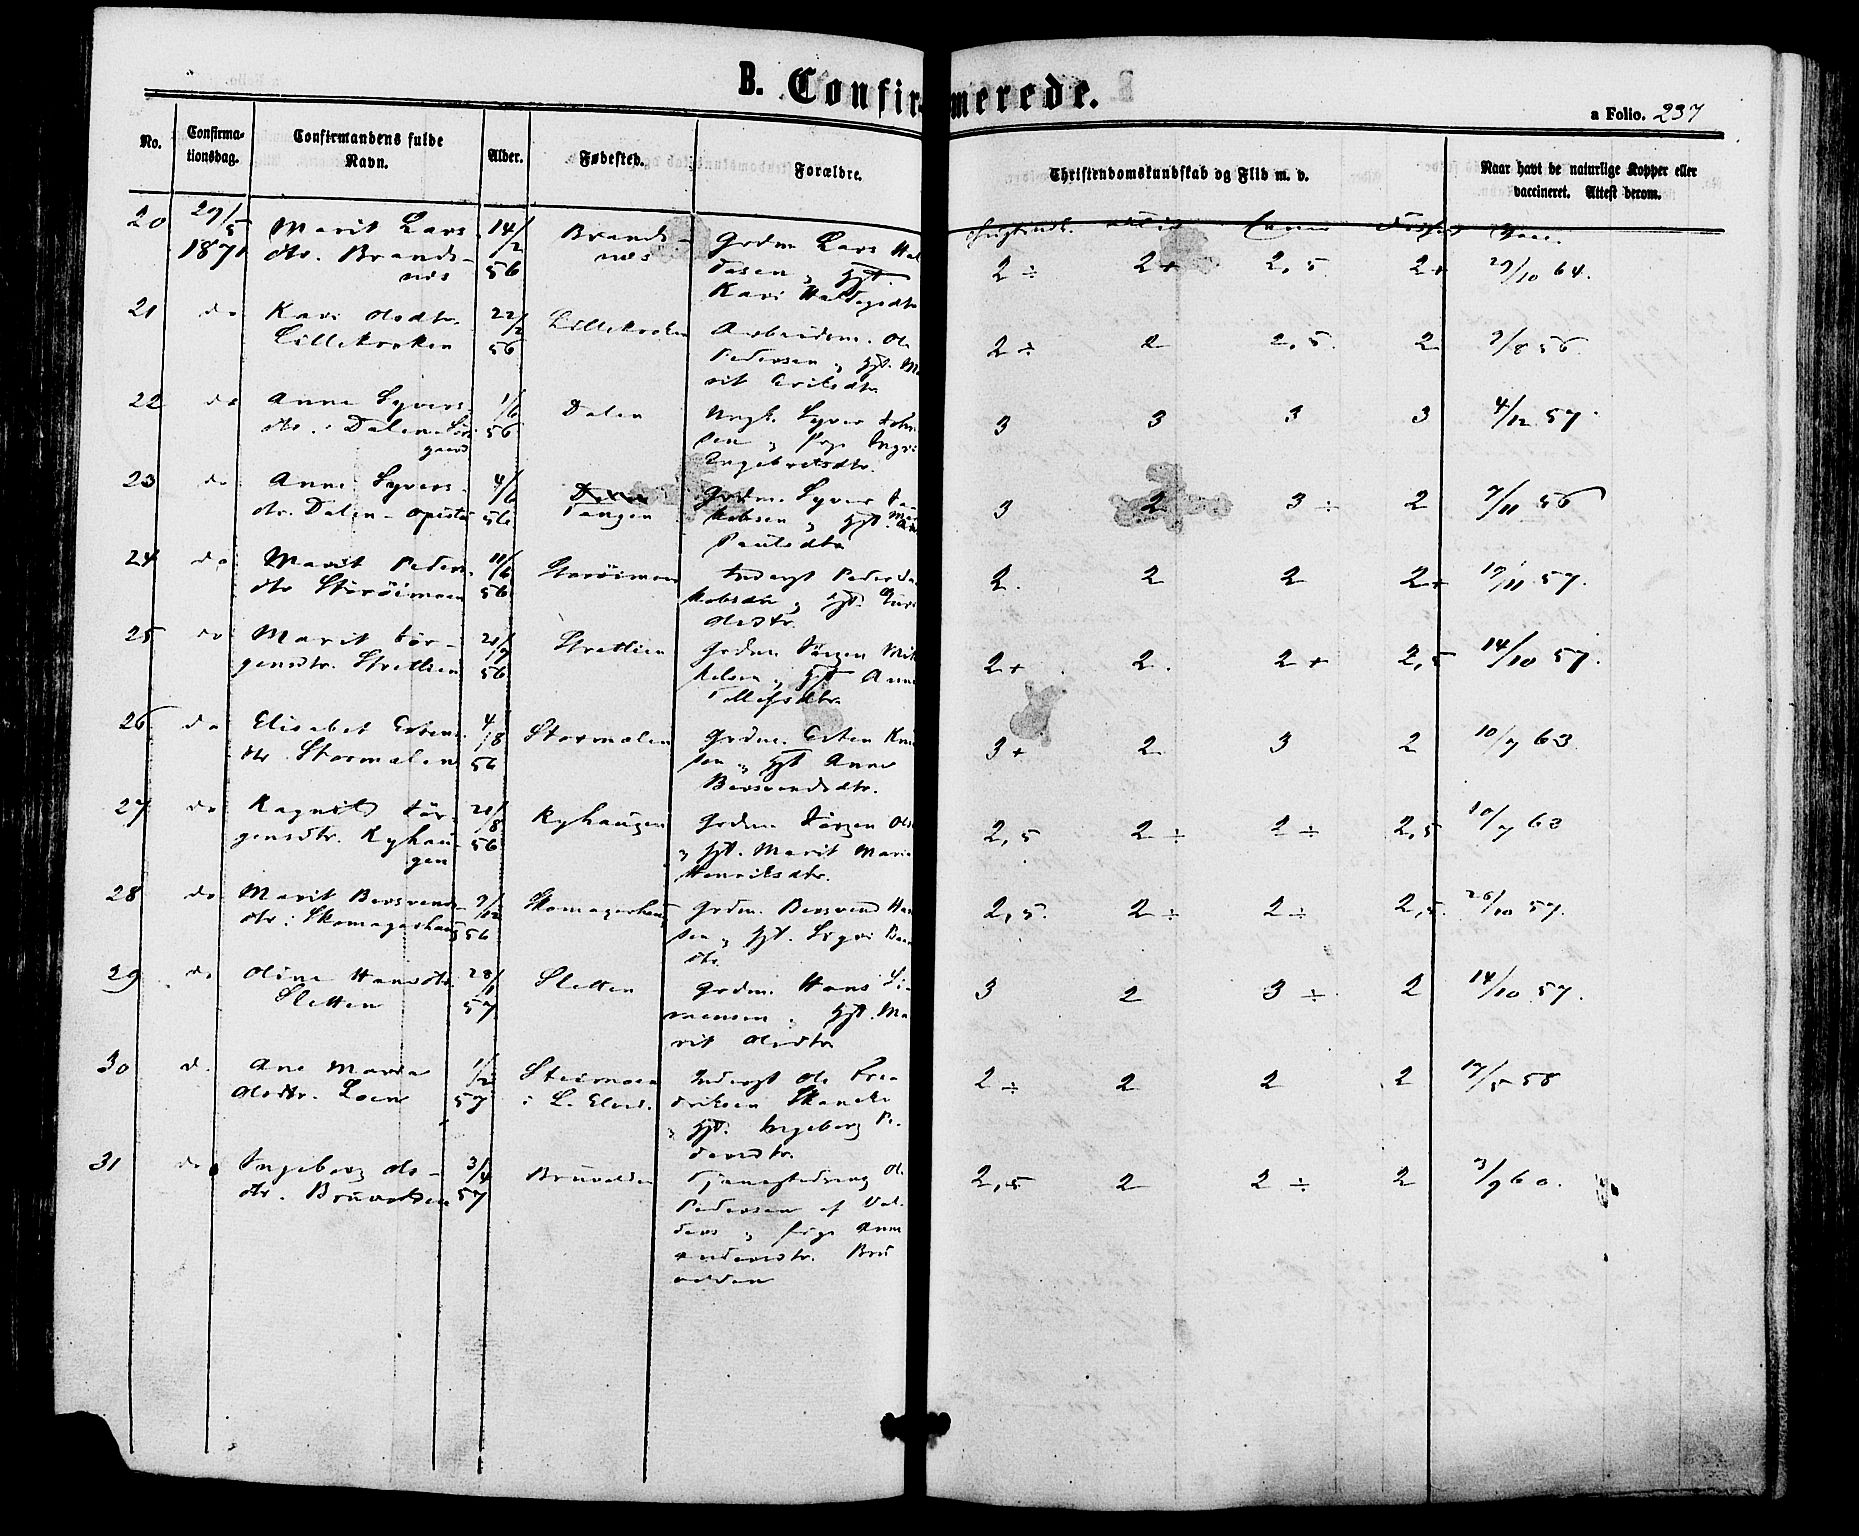 B. Confirmerede.
a Folio. 237
No.
Confirma-
tionsdag.
Confirmandens fulde
Navn.
Alder.
Fødested.
Forældre.
Christendomskundskab og Flid m. v.
Naar havt de naturlige Kopper eller
vaccineret. Attest derom.
20 29/5 1871
Marit Lars-
dtr. Brands-
næs
14/2 56
Brands-
næs
Grdm Lars Hal
Kari
2 ÷ 2+ 2,5 2+ 29/10 64.
21 do
Kari Olsdtr.
Lillekroken
22/2 56
Lillekroken
Arbeidsm. Ole
Pedersen og Hst. Ma
rit Eriksdtr.
2 ÷ 2 2,5 2 9/8 56.
22 do
Anne Syvers
dtr. i Dalen
gaard
1/6 56
Dalen
Ungk. Syver John
sen og Pige Ingri
Ingebretsdtr.
3 3 3 3 4/12 57.
23 do
Anne Syvers-
dtr. Dalen-
4/6 56
Tangen
Grdm. Syver Ja
kobsen og Hst.
Paulsdtr
3 2 3 ÷ 2 9/11 56
24 do
Marit Peders
dtr Storøimoen
11/6 56
Storøimoen
Inderst Peder Ja
kobsen og Hst. Guri
Olsdtr.
2. 2 2 2+ 19/11 57.
25 do
Marit Jør-
gensdtr. Strellien
21/7 56
Strellien
Grdm. Jørgen Mik
kelsen og Hst Anne
Tollefsdtr.
2+ 2. 2+ 2,5 14/10 57.
26 do
Elisabet Estens
dtr. Stormalen
4/8 56
Stormalen
Grdm. Esten Knu
sen og Hst Anne
Bersvendsdtr.
3+ 2 3 2 10/7 63
27 do
Ragnild Jør-
gensdtr. Ryhau-
gen
21/8 56
Ryhaugen
Grdm Jørgen Ols
og Hst. Marit Marie
Henriksdtr.
2,5 2 ÷ 2 ÷ 2,5 10/7 63
28 do
Marit Bersvends
dtr. i Skomagerhaug
9/12 56
Skomagerhaug
Grdm. Bersvend Han
sen og Hst. Sigri
dtr.
2,5. 2 ÷ 2 ÷ 2,5. 26/10 57.
29 do
Oline Hansdtr.
Sletten
28/1 57
Sletten
Grdm. Hans Si-
mensen og Hst. Ma
rit Olsdtr
3 2 3 ÷ 2 14/10 57.
30 do
Ane Maria
Olsdtr. Loen
1/2 57
Steimoen
i L. Elved.
Inderst Ole Fre
driksen Skancke
og Hst. Ingeborg Pe-
dersdtr.
2 ÷ 2 2 2 17/5 58
31 do
Ingeborg Ols-
dtr. Bruvolden
3/4 57
Bruvolden
Tjenestedreng Ole
Pedersen af Val-
ders og Pige Anne
Andersdtr. Bru
volden
2,5 2 2 ÷ 2 3/9 60.